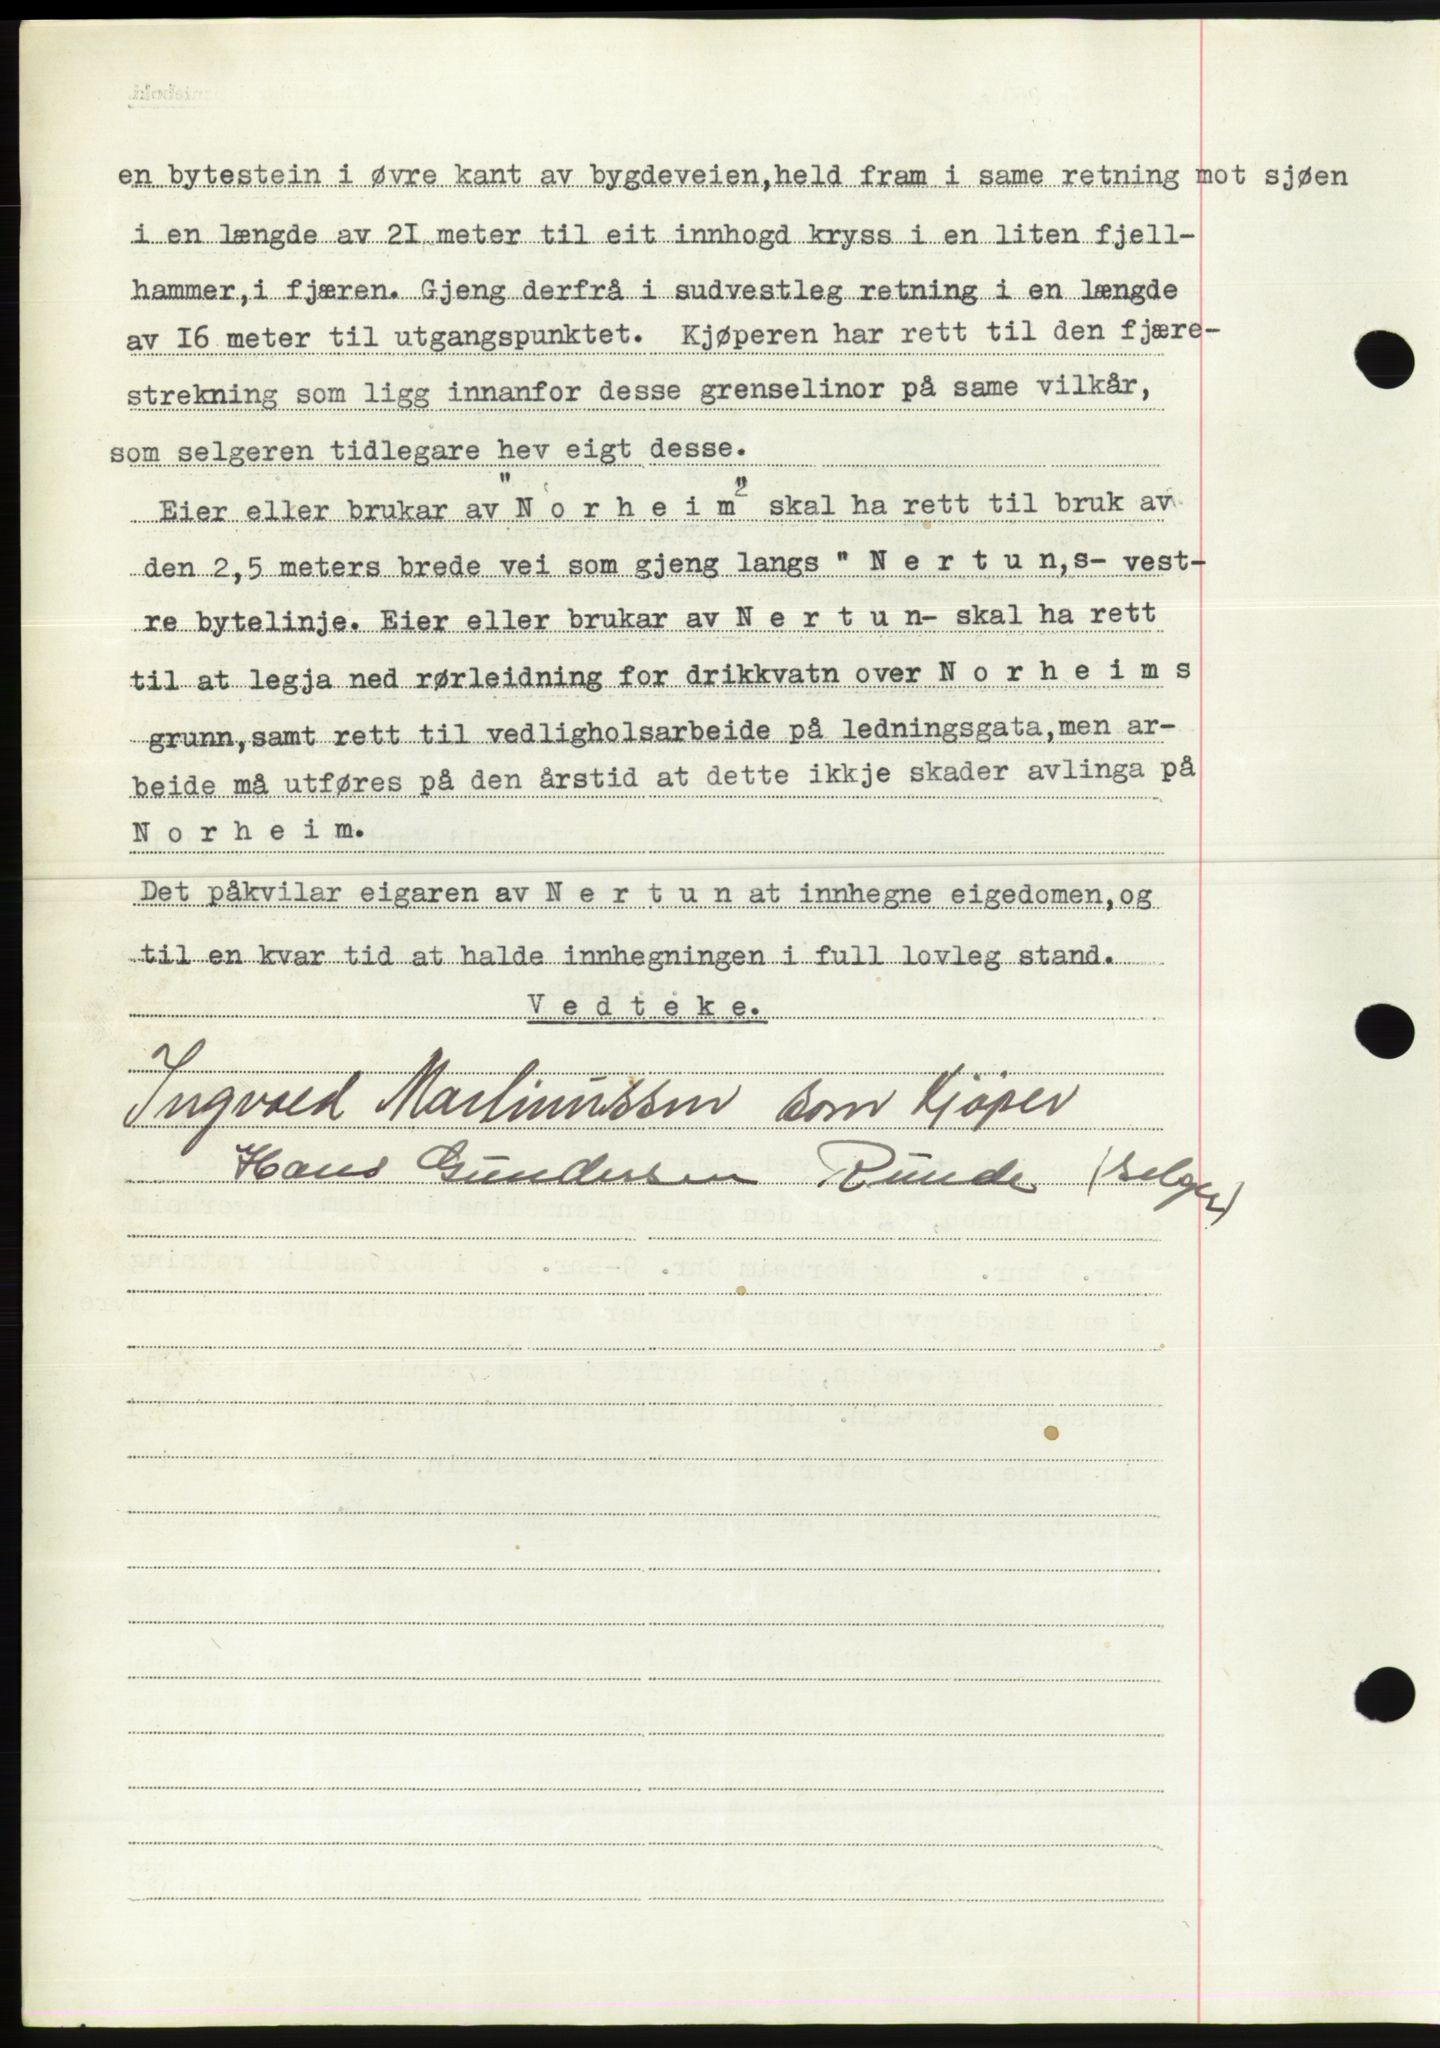 en bytestein i øvre kant av bygdeveien,held fram i same retning mot sjøen
i en længde av 2I meter til eit innhogd kryss i en liten fjell-
hammer,i fjæren. Gjeng derfrå i sudvestleg retning i en længde
av I6 meter til utgangspunktet. Kjøperen har rett til den fjære-
strekning som ligg innanfor desse grenselinor på same vilkår,
som selgeren tidlegare hev eigt desse.
Eier eller brukar av "N o r h e i m" skal ha rett til bruk av
den 2,5 meters brede vei som gjeng langs " N e r t u n,s- vest-
re bytelinje. Eier eller brukar av N e r t u n- skal ha rett
til at legja ned rørleidning for drikkvatn over N o r h e i m s
grunn,samt rett til vedligholsarbeide på ledningsgata,men ar-
beide må utføres på den årstid at dette ikkje skader avlinga på
N o r h e i m.
Det påkvilar eigaren av N e r t u n at innhegne eigedomen,og
til en kvar tid at halde innhegningen i full lovleg stand.
V e d t e k e.
Ingvald Martinussen som Kjøper
Hans Gundersen Runde (selger)